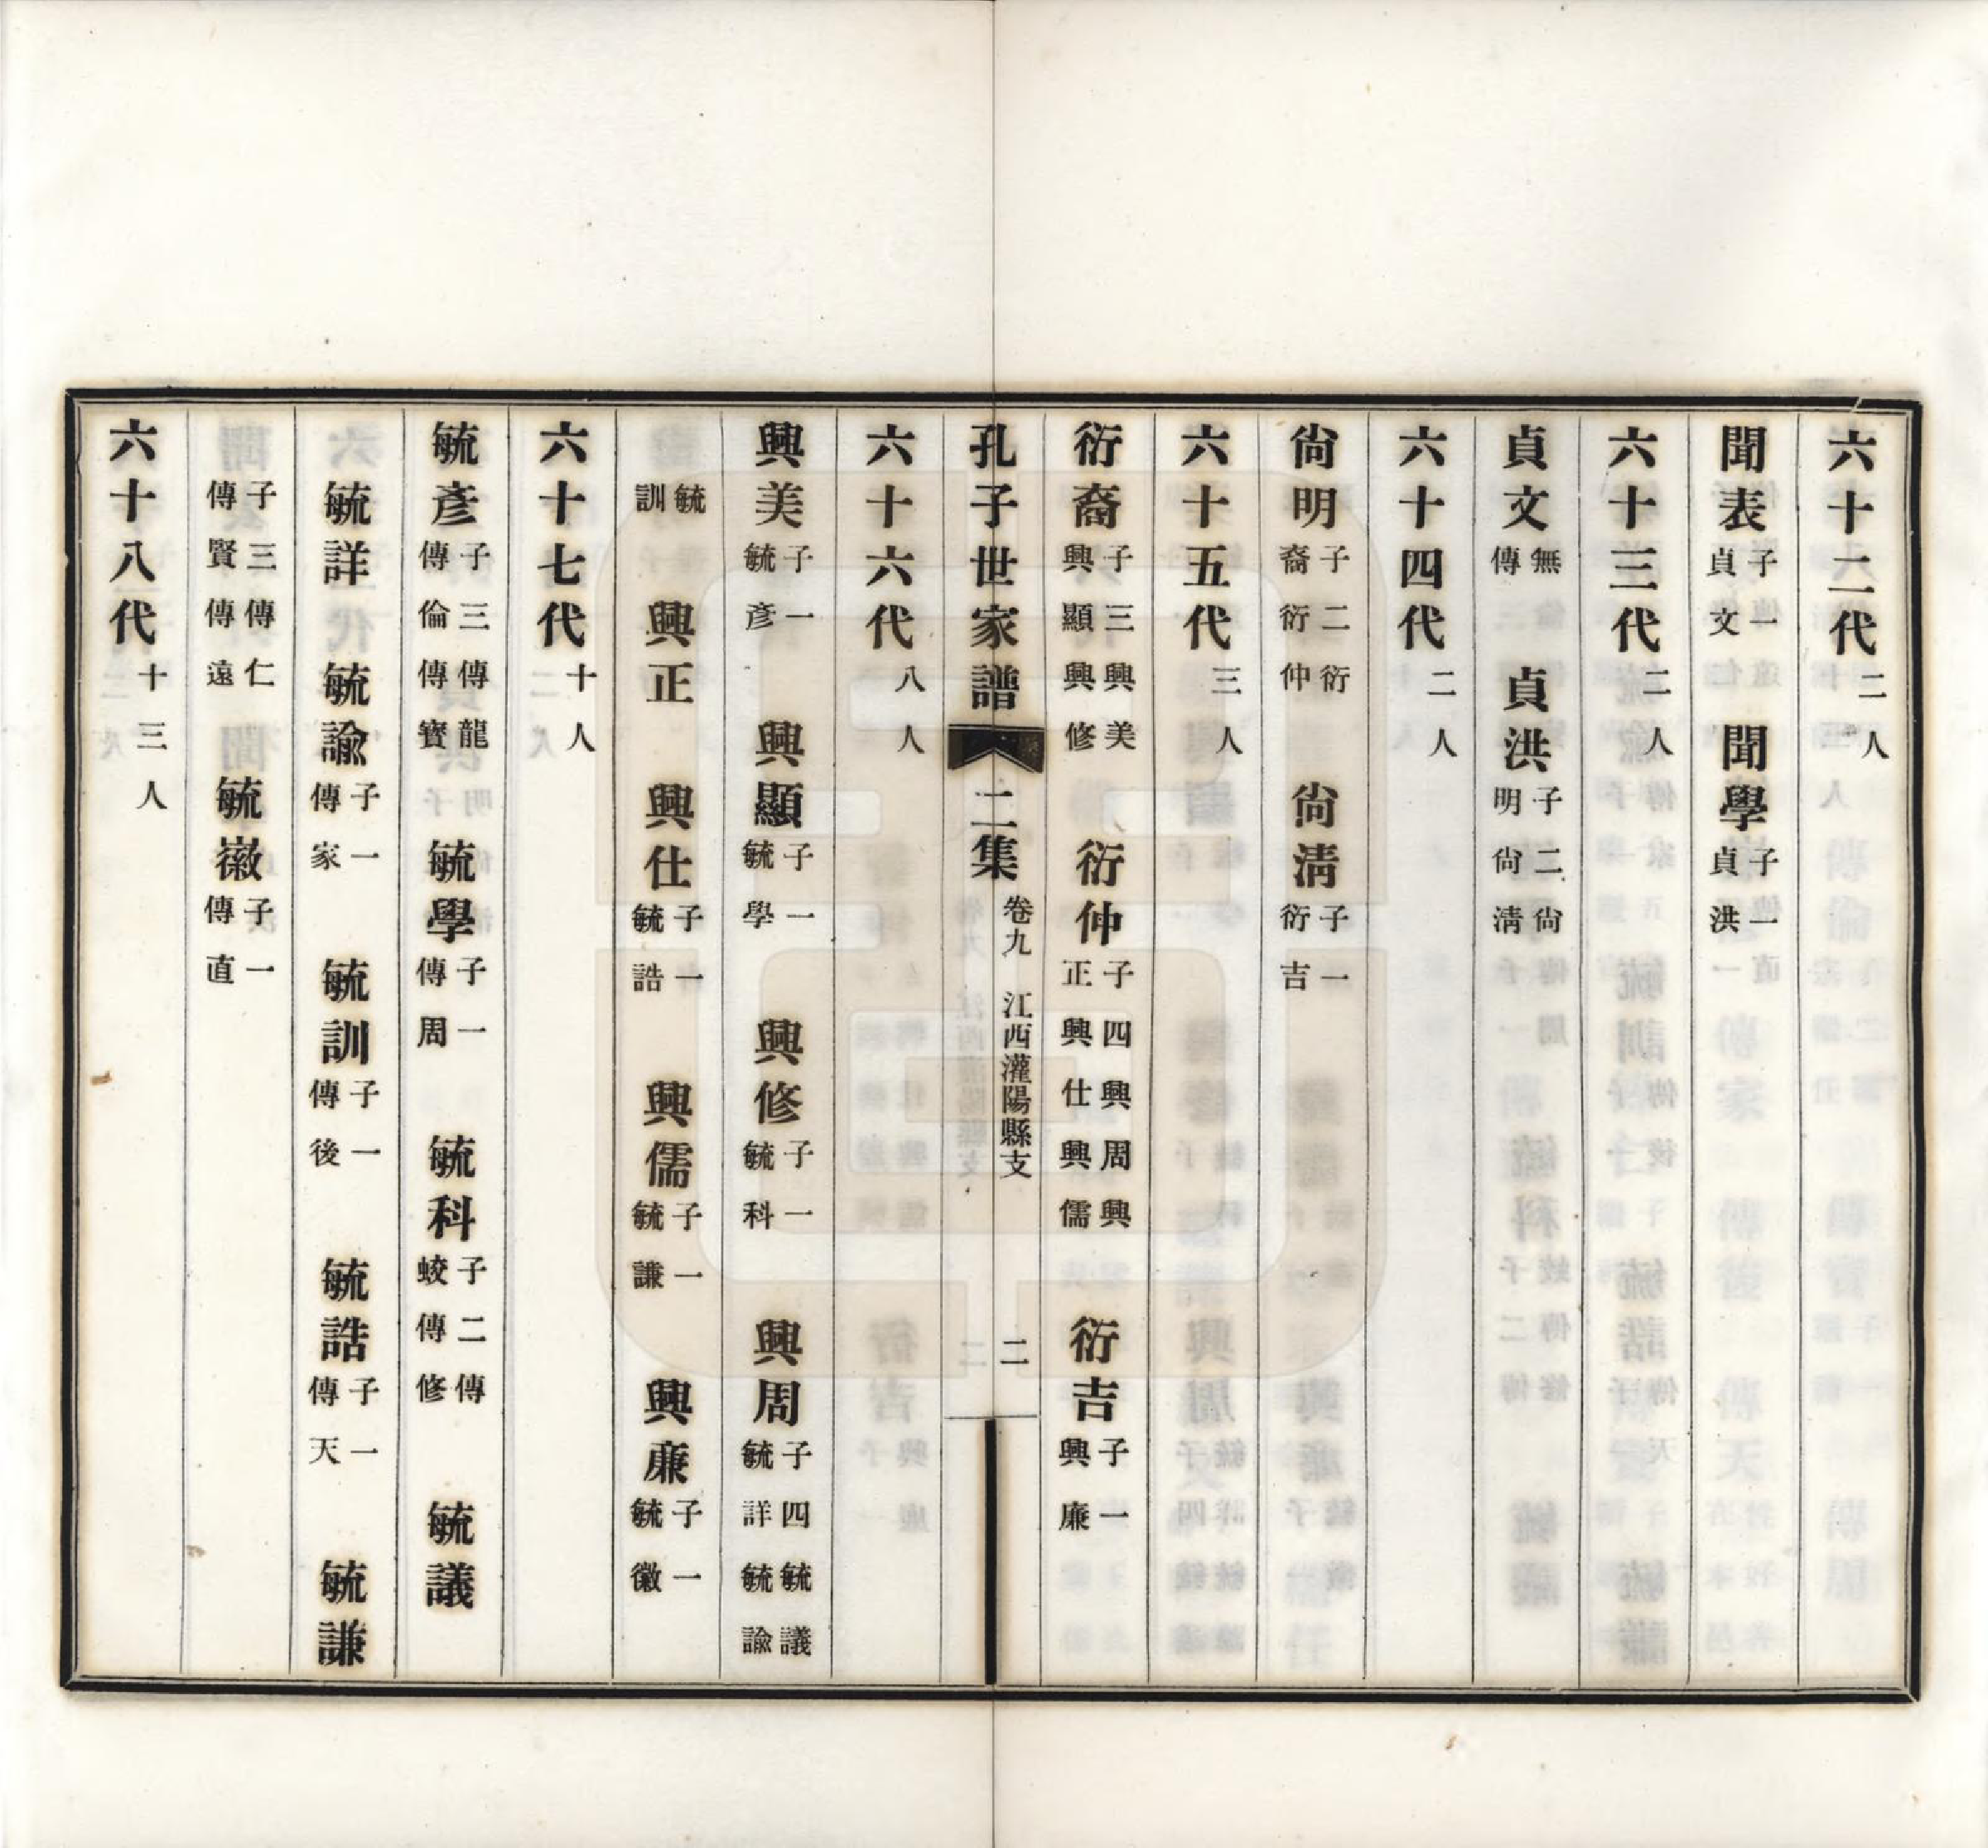 六十二代二人
聞表子一貞文　聞學子一貞洪
六十三代二人
貞文無傳　貞洪子二尙明尙淸
六十四代二人
尙明子二衍裔衍仲　尙淸子一衍吉
六十五代三人
衍裔子三興美興顯興修　衍仲子四興周興正興仕興儒　衍吉子一興廉
孔子世家譜　二集　卷九　江西灌陽縣支　二
六十六代八人
興美子一毓彥　興顯子一毓學　興修子一毓科　興周子四毓議毓詳毓諭
毓訓　興正　興仕子一毓誥　興儒子一毓謙　興廉子一毓徽
六十七代十人
毓彥子三傳龍傳倫傳寶　毓學子一傳周　毓科子二傳蛟傳修　毓議
毓詳　毓諭子一傳家　毓訓子一傳後　毓誥子一傳天　毓謙
子三傳仁傳賢傳遠　毓徽子一傳直
六十八代十三人